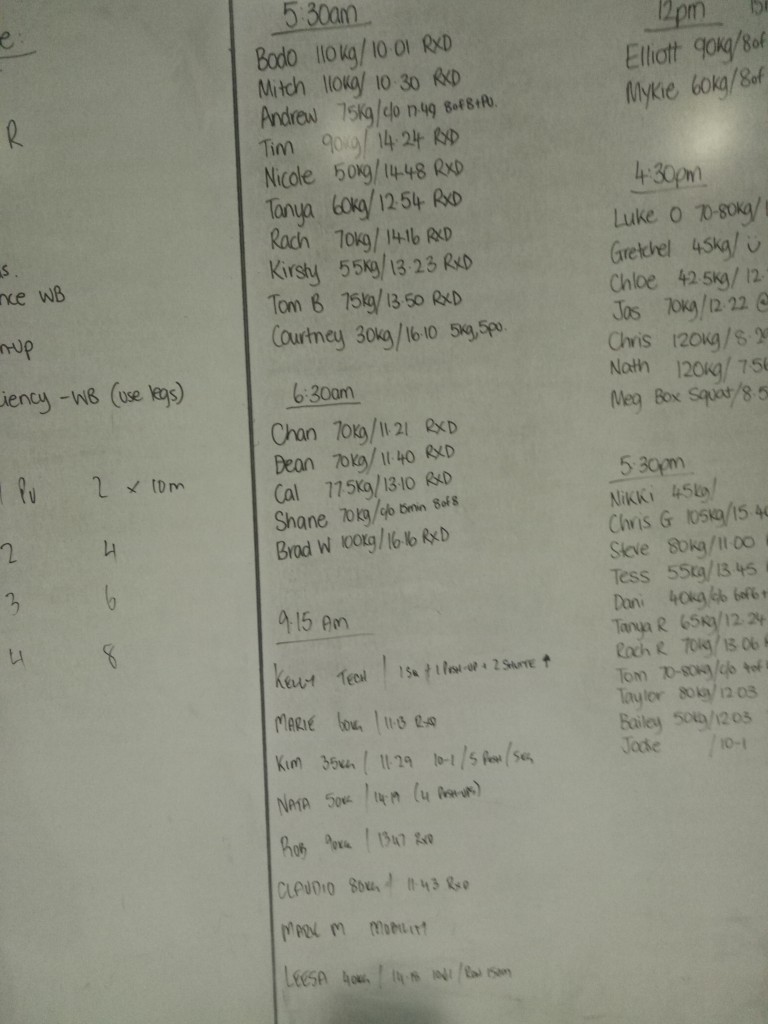 e:
R
s.
nce WB
n-up
iency - WB (use legs)
1 PU 2 x 10m
2 4
3 6
4 8
5:30am
Bodo 110kg/10.01 RXD
Mitch 110kg/10.30 RXD
Andrew 75kg/c/o 17.49 8of8+PU.
Tim 90kg/14.24 RXD
Nicole 50kg/14.48 RXD
Tanya 60kg/12.54 RXD
Rach 70kg/14.16 RXD
Kirsty 55kg/13.23 RXD
Tom B 75kg/13.50 RXD
Courtney 30kg/16.10 5kg,5pu.
6:30am
Chan 70kg/11.21 RXD
Dean 70kg/11.40 RXD
Cal 77.5kg/13.10 RXD
Shane 70kg/c/o 15min 8of8
Brad W 100kg/16.16 RXD
9.15 Am
Kelly Tech / 1 + 1 Push-up + 2 Shuttle ↑
MARIE 60kg / 11.13 RXD
KIM 35kg / 11.29 10-1 / 5 Push / 5kg
NATA 50kg / 14.19 (4 Push-ups)
ROB 90kg / 13.47 RXD
CLAUDIO 80kg / 11.43 RXD
MARK M MOBILITY
LEESA 40kg / 14.18 / Row 150m
12pm
Elliott 90kg/8of
Mykie 60kg/8of
4:30pm
Luke O 70-80kg/
Gretchel 45kg/ ü
Chloe 42.5kg/12.
Jas 70kg/12.22 @
Chris 120kg/8.2
Nath 120kg/7.5
Meg Box Squat/8.5
5:30pm
Nikki 45kg/
Chris G 105kg/15.4
Steve 80kg/11.00
Tess 55kg/13.45
Dani 40kg/c/o 6of6+
Tanya R 65kg/12.24
Rach R 70kg/13.06
Tom 70-80kg/c/o 4of
Taylor 80kg/12.03
Bailey 50kg/12.03
Jodie /10-1